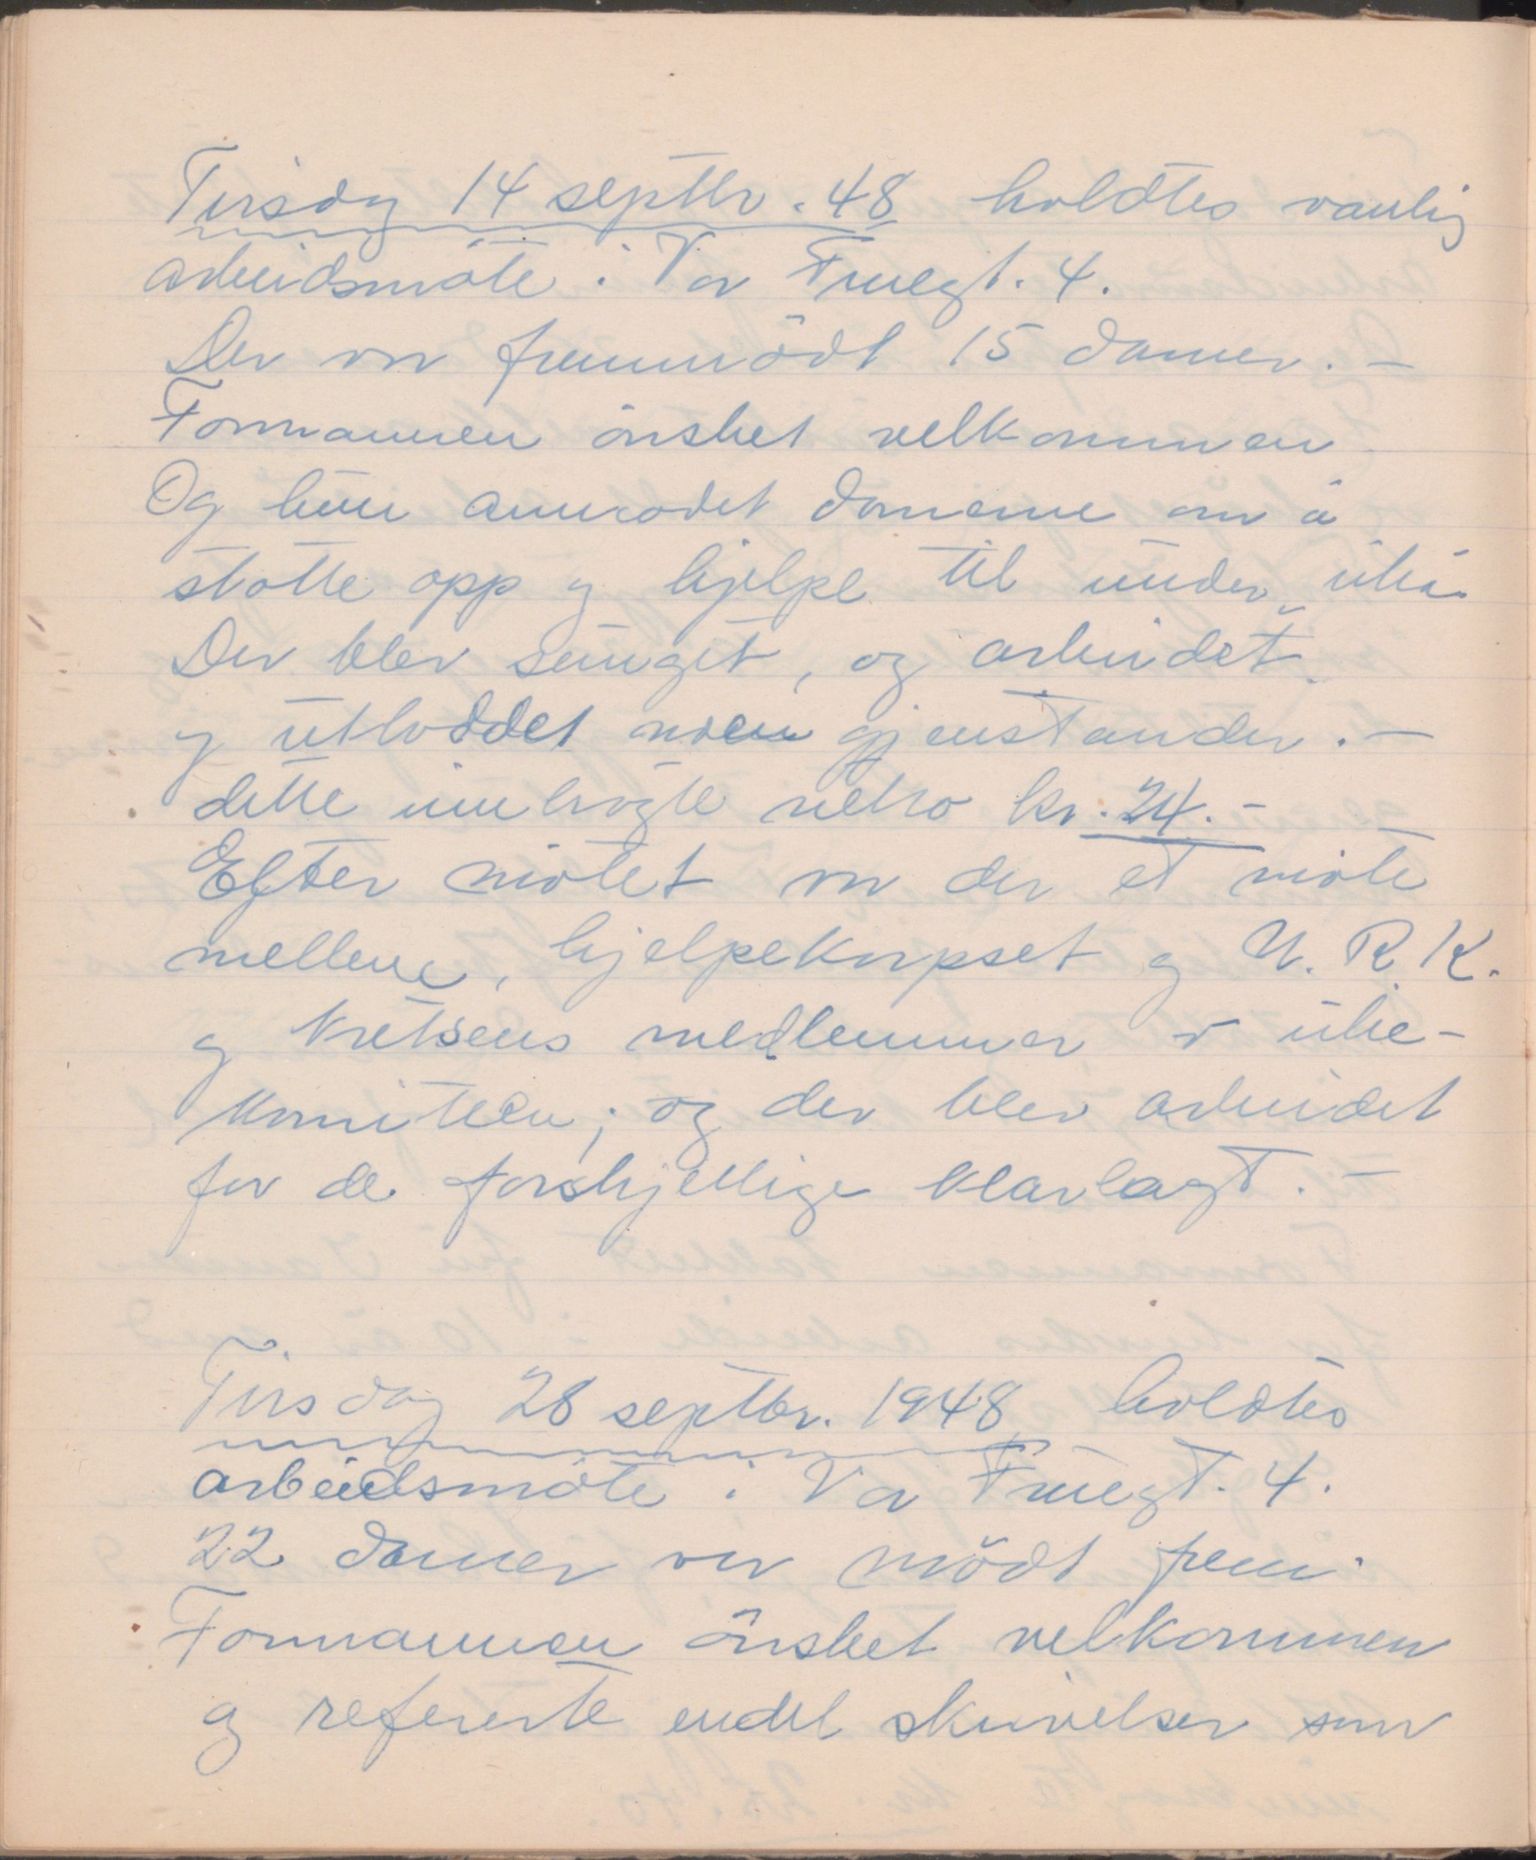 Tirsdag 14 septbr. 48 holdtes vanlig
arbeidsmöte i Vor Fruegt. 4.
Der var fremmödt 15 damer. –
Formannen önsket velkommen
Og hun anmodet damerne om å
støtte opp og hjelpe til under uken
Der blev sunget, og arbeidet
og utloddet noen gjenstander. –
dette innbragte netto kr. 24. –
Efter mötet var der et möte
mellem, hjelpekorpset og U. R. K.
og kretsens medlemmer i uke-
komiteen; og der blev arbeidet
for de forskjellige klarlagt. –
Tirsdag 28 septbr. 1948 holdtes
arbeidsmöte i Vor Fruegt. 4.
22 damer var mödt frem.
Formannen önsket velkommen
og refererte endel skrivelser som